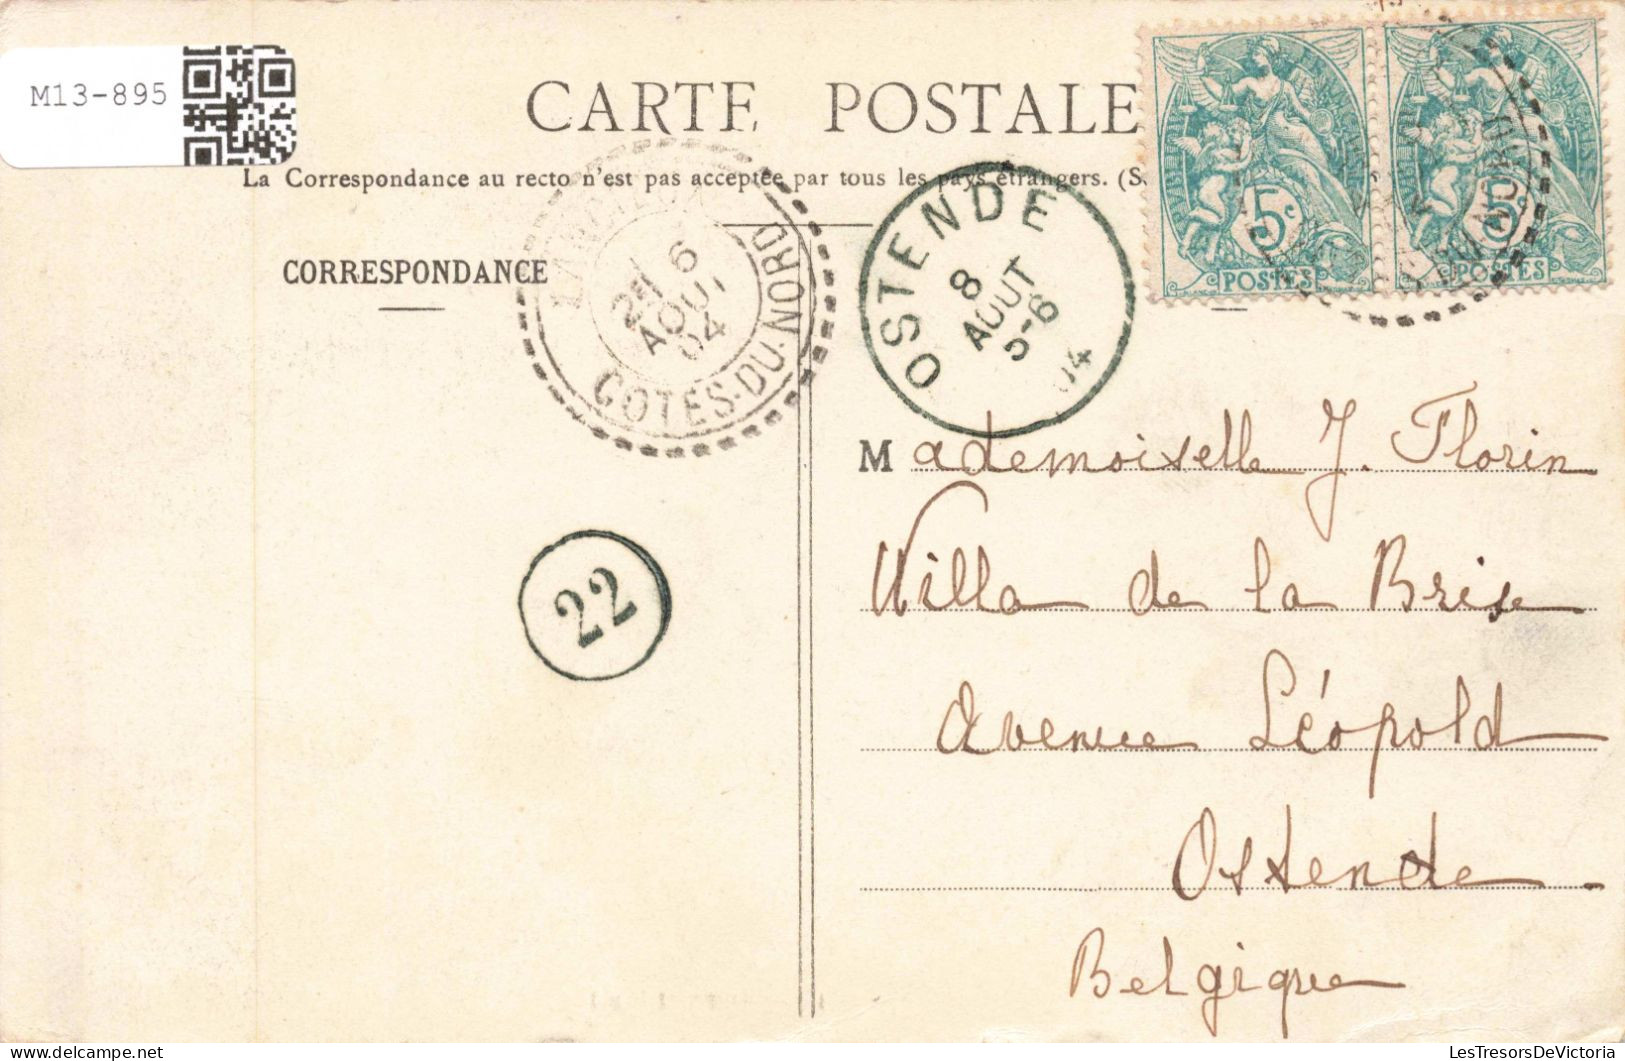 M13-895
CARTE POSTALE
La Correspondance au recto n'est pas acceptée par tous les pays étrangers. (S
CORRESPONDANCE
6
AOUT
04
COTES-DU-NORD
OSTENDE
8
AOUT
5-6
04
5c
POSTES
5c
POSTES
22
Mademoiselle J. Florin
Villa de la Brise
Avenue Léopold
Ostende.
Belgique
LesTresorsDeVictoria